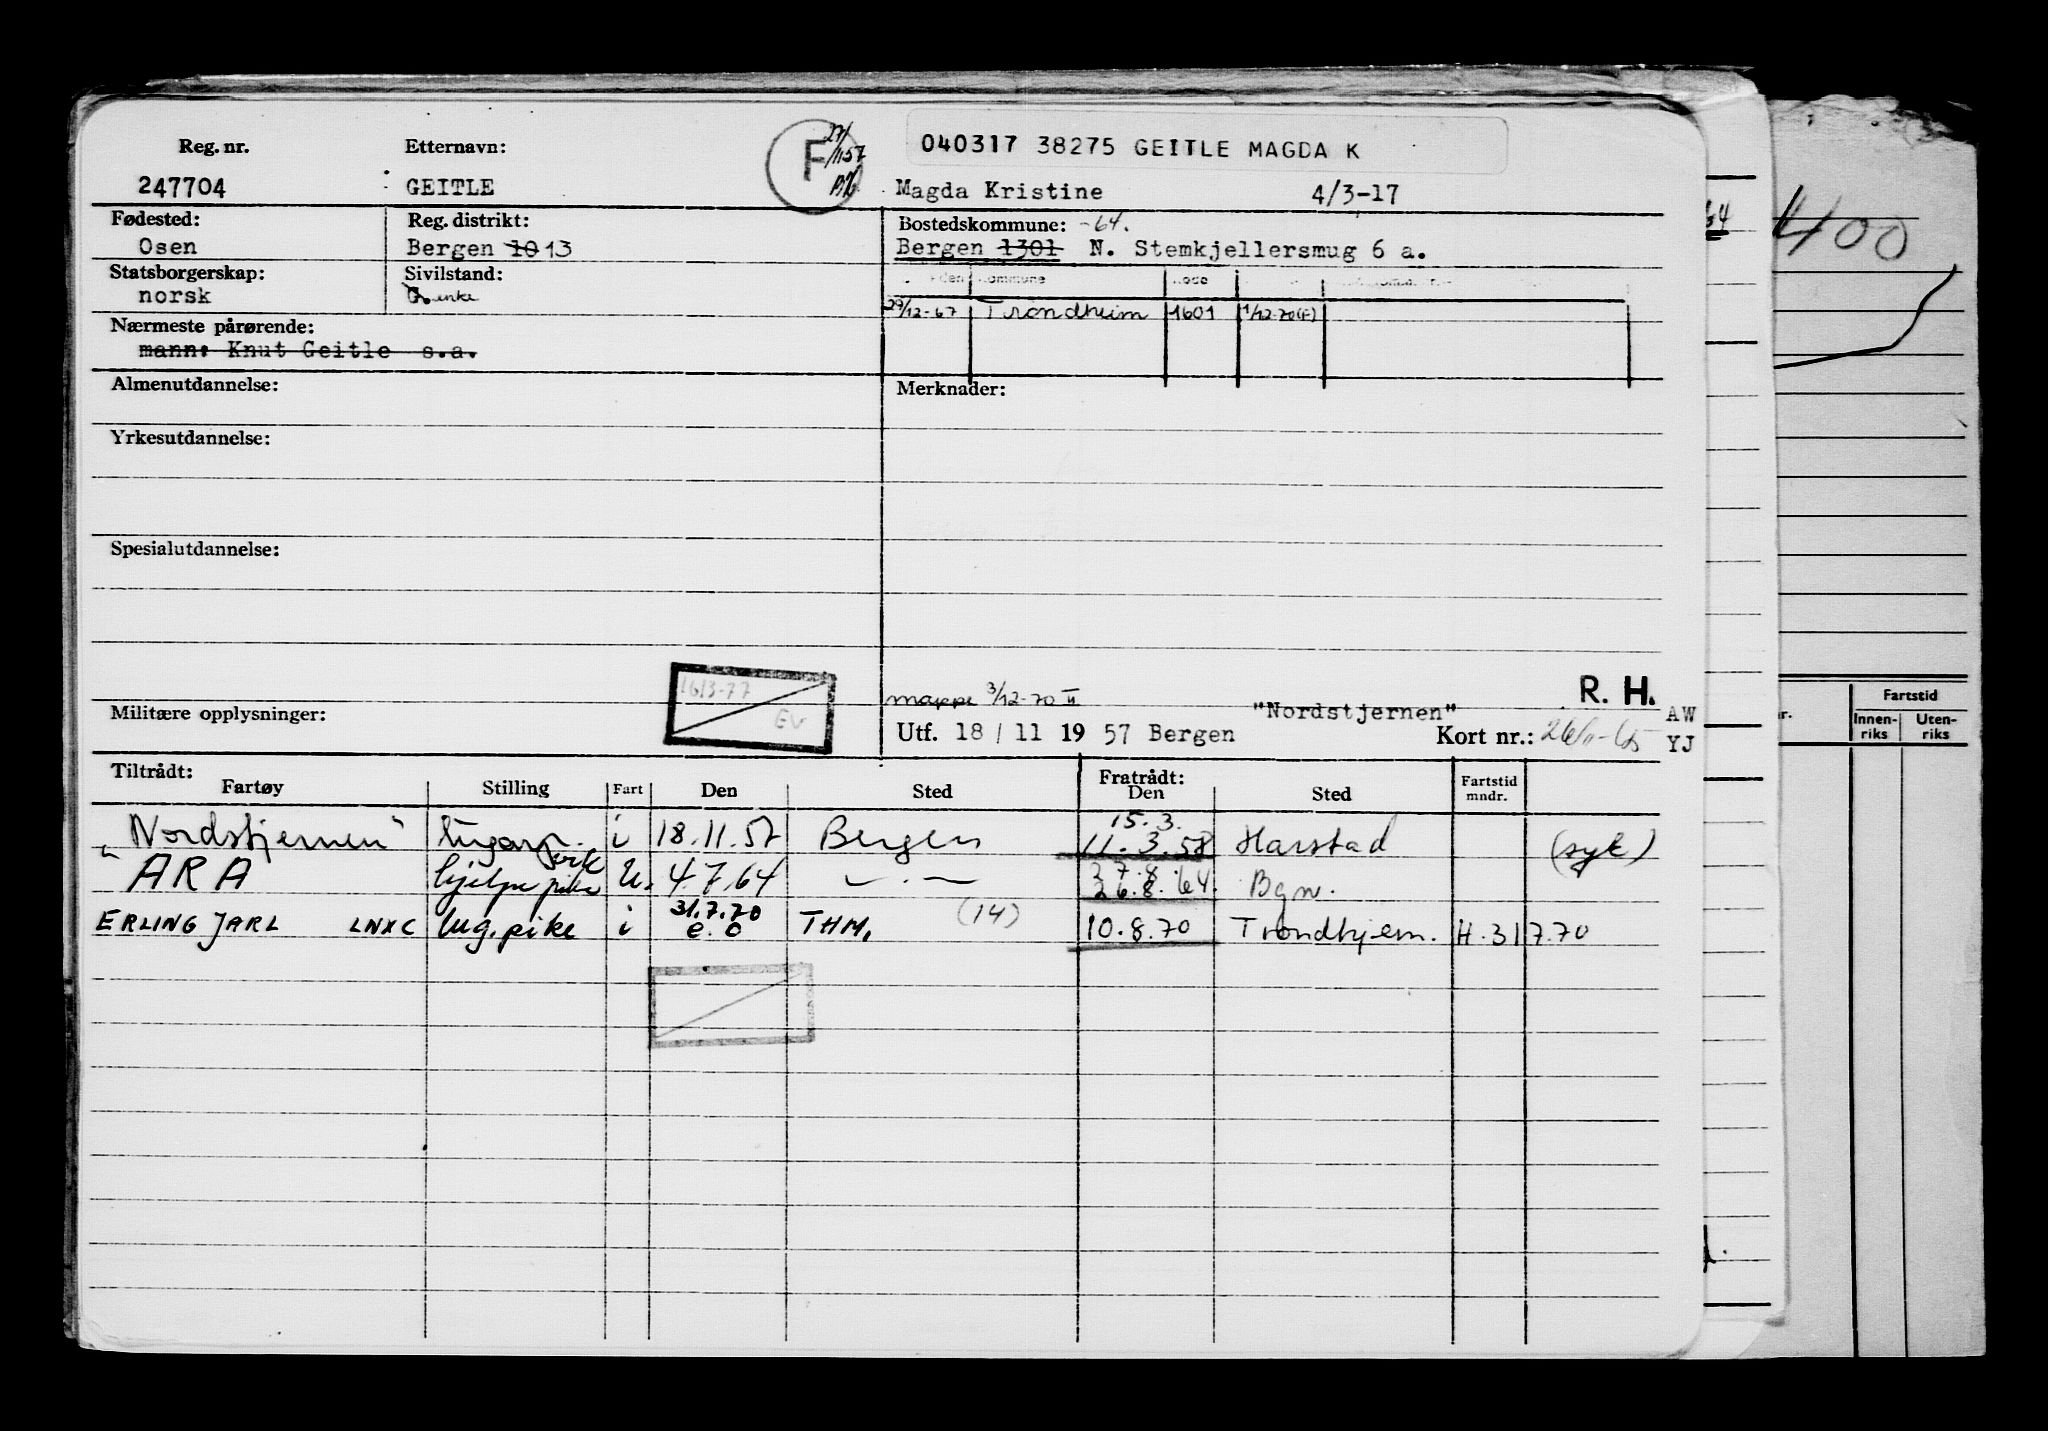 Reg. nr. Etternavn: F 27/1157 040317 38275 GEITLE MAGDA K
247704 GEITLE Magda Kristine 4/3-17
Fødested: Reg. distrikt: Bostedskommune: -64.
Osen Bergen 10 13 Bergen 1301 N. Stemkjellersmug 6 a.
Statsborgerskap: Sivilstand:
norsk G. enke
29/12-67 Trondheim 1601 1/12-70(F)
Nærmeste pårørende:
mann: Knut Geitle s.a.
Almenutdannelse: Merknader:
Yrkesutdannelse:
Spesialutdannelse:
1613-77
EV
mappe 3/12-70 R. H.
Militære opplysninger: "Nordstjernen" AW
Utf. 18 / 11 19 57 Bergen Kort nr.: YJ
Tiltrådt: Fratrådt:
Fartøy Stilling Fart Den Sted Den Sted Fartstid mndr.
15.3.
"Nordstjernen" lugarp. i 18.11.57 Bergen 11.3.58 Harstad (syk)
27.8.
ARA hjelpepike U. 4.7.64 — . — 26.8.64. Bgn.
31.7.70 (14)
ERLING JARL LNXC lug.pike i e.o THM. 10.8.70 Trondhjem. H.317.70
64
400
Fartstid
Innenriks Utenriks